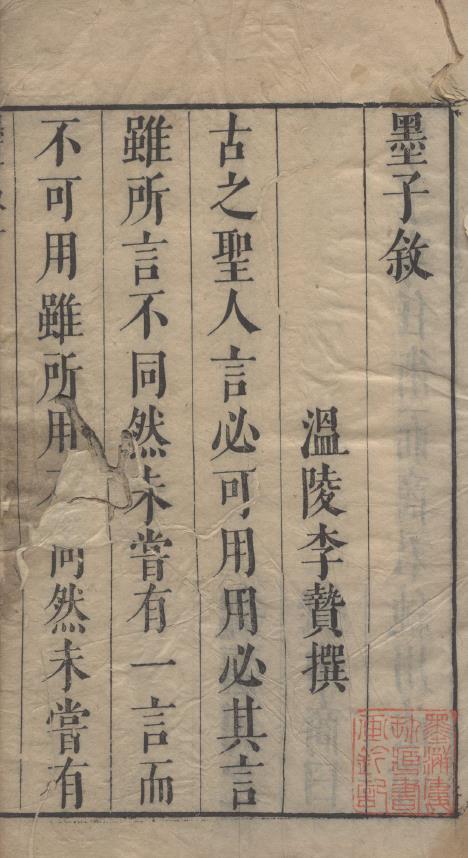 墨子敘
溫陵李贄撰
古之聖人言必可用用必其言
雖所言不同然未嘗有一言而
不可用雖所用不同然未嘗有